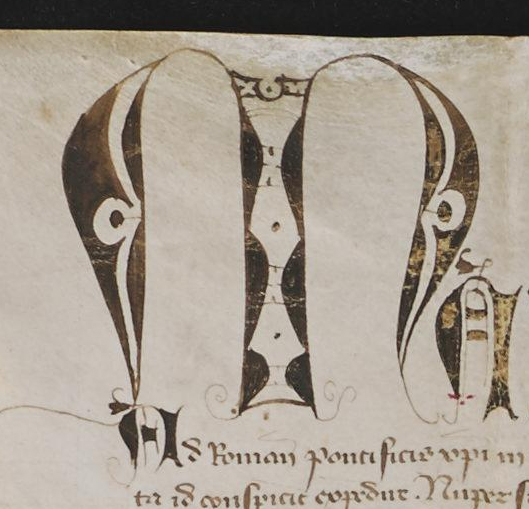 M
A
Ad Roman pontificis xpi in
ta id conspicit expedire. Nuper